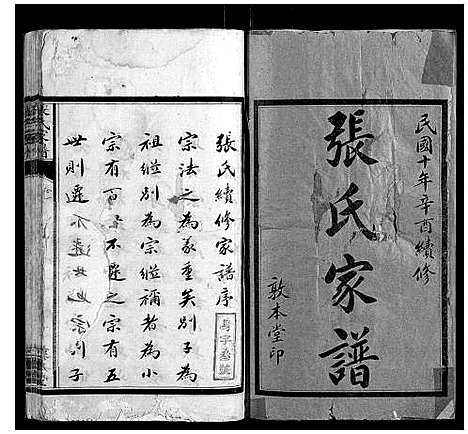 民國十年辛酉續修
張氏家譜
敦本堂印
張氏續修家譜序
宗法之為義重矣別子為
祖繼別為宗繼禰者為小
宗有百世不遷之宗有五
世則遷之宗